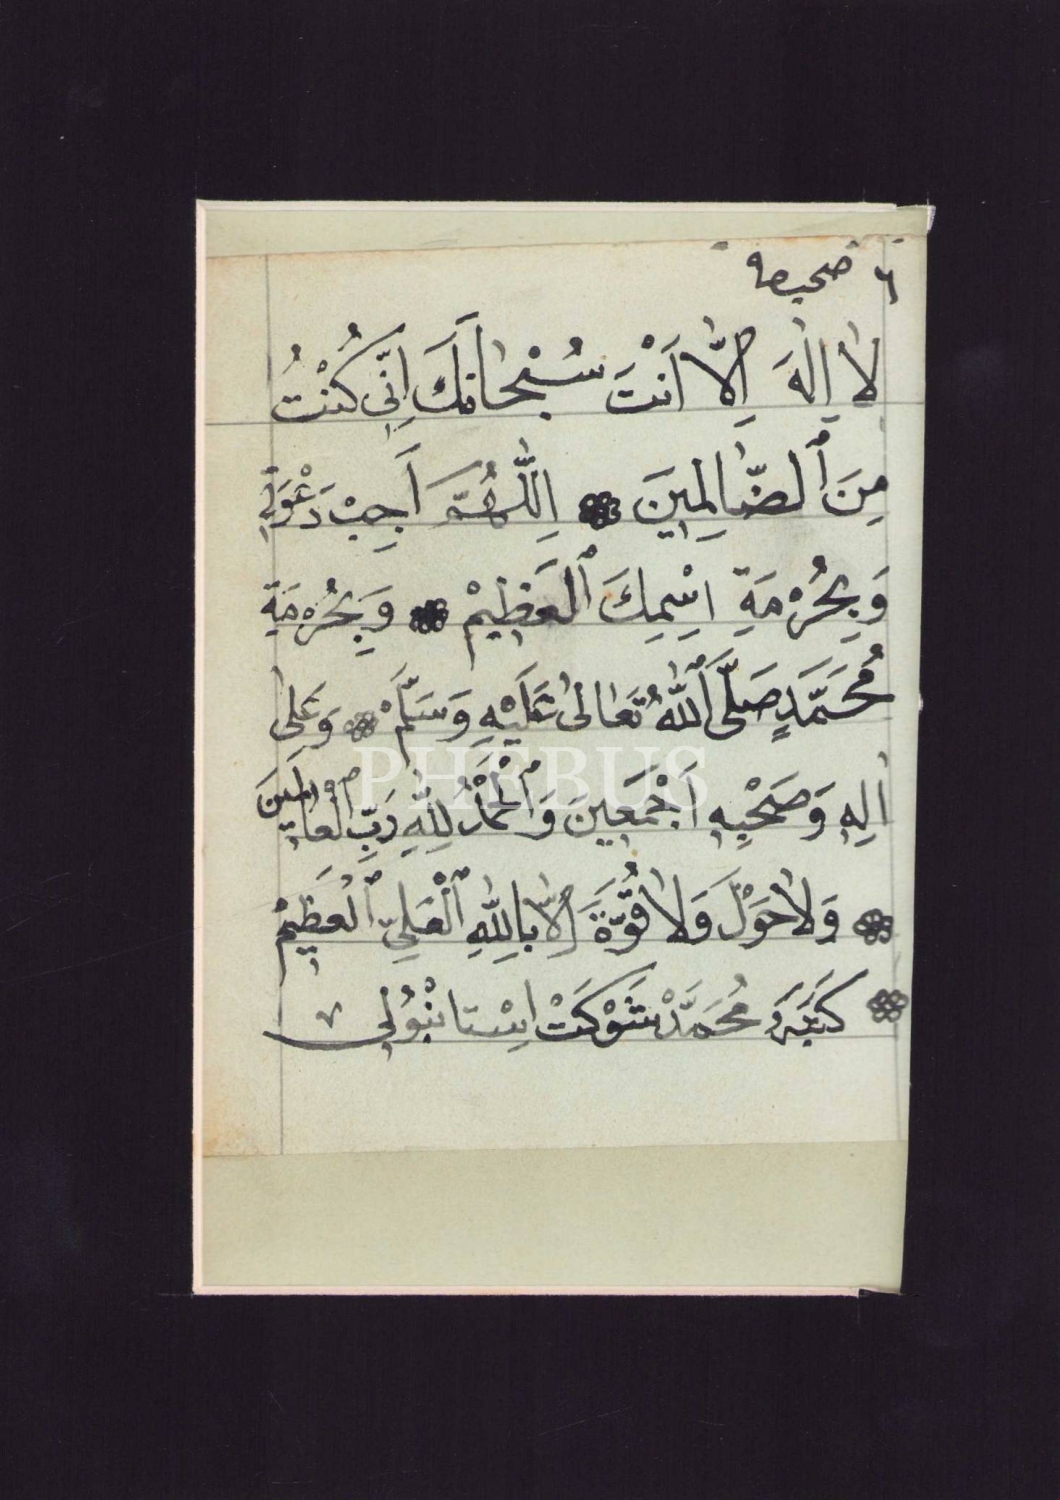 ٦ صحيفه
لَا اِلٰهَ اِلَّا اَنْتَ سُبْحَانَكَ اِنِّي كُنْتُ
مِنَ ٱلضَّالِمِينَ اَللّٰهُمَّ اَجِبْ دَعْوَتِي
وَبِحُرْمَةِ اِسْمِكَ ٱلْعَظِيمْ وَبِحُرْمَةِ
مُحَمَّدٍ صَلَّى ٱللّٰهُ تَعَالٰى عَلَيْهِ وَسَلَّمْ وَعَلٰى
اٰلِهِ وَصَحْبِهِ اَجْمَعِينَ وَٱلْحَمْدُ لِلّٰهِ رَبِّ ٱلْعَالَمِينَ
PHEBUS
وَلَا حَوْلَ وَلَا قُوَّةَ اِلَّا بِاللّٰهِ ٱلْعَلِيِّ ٱلْعَظِيمْ
كَتَبَهُ مُحَمَّدْ شَوْكَتْ اِسْتَانْبُولِي